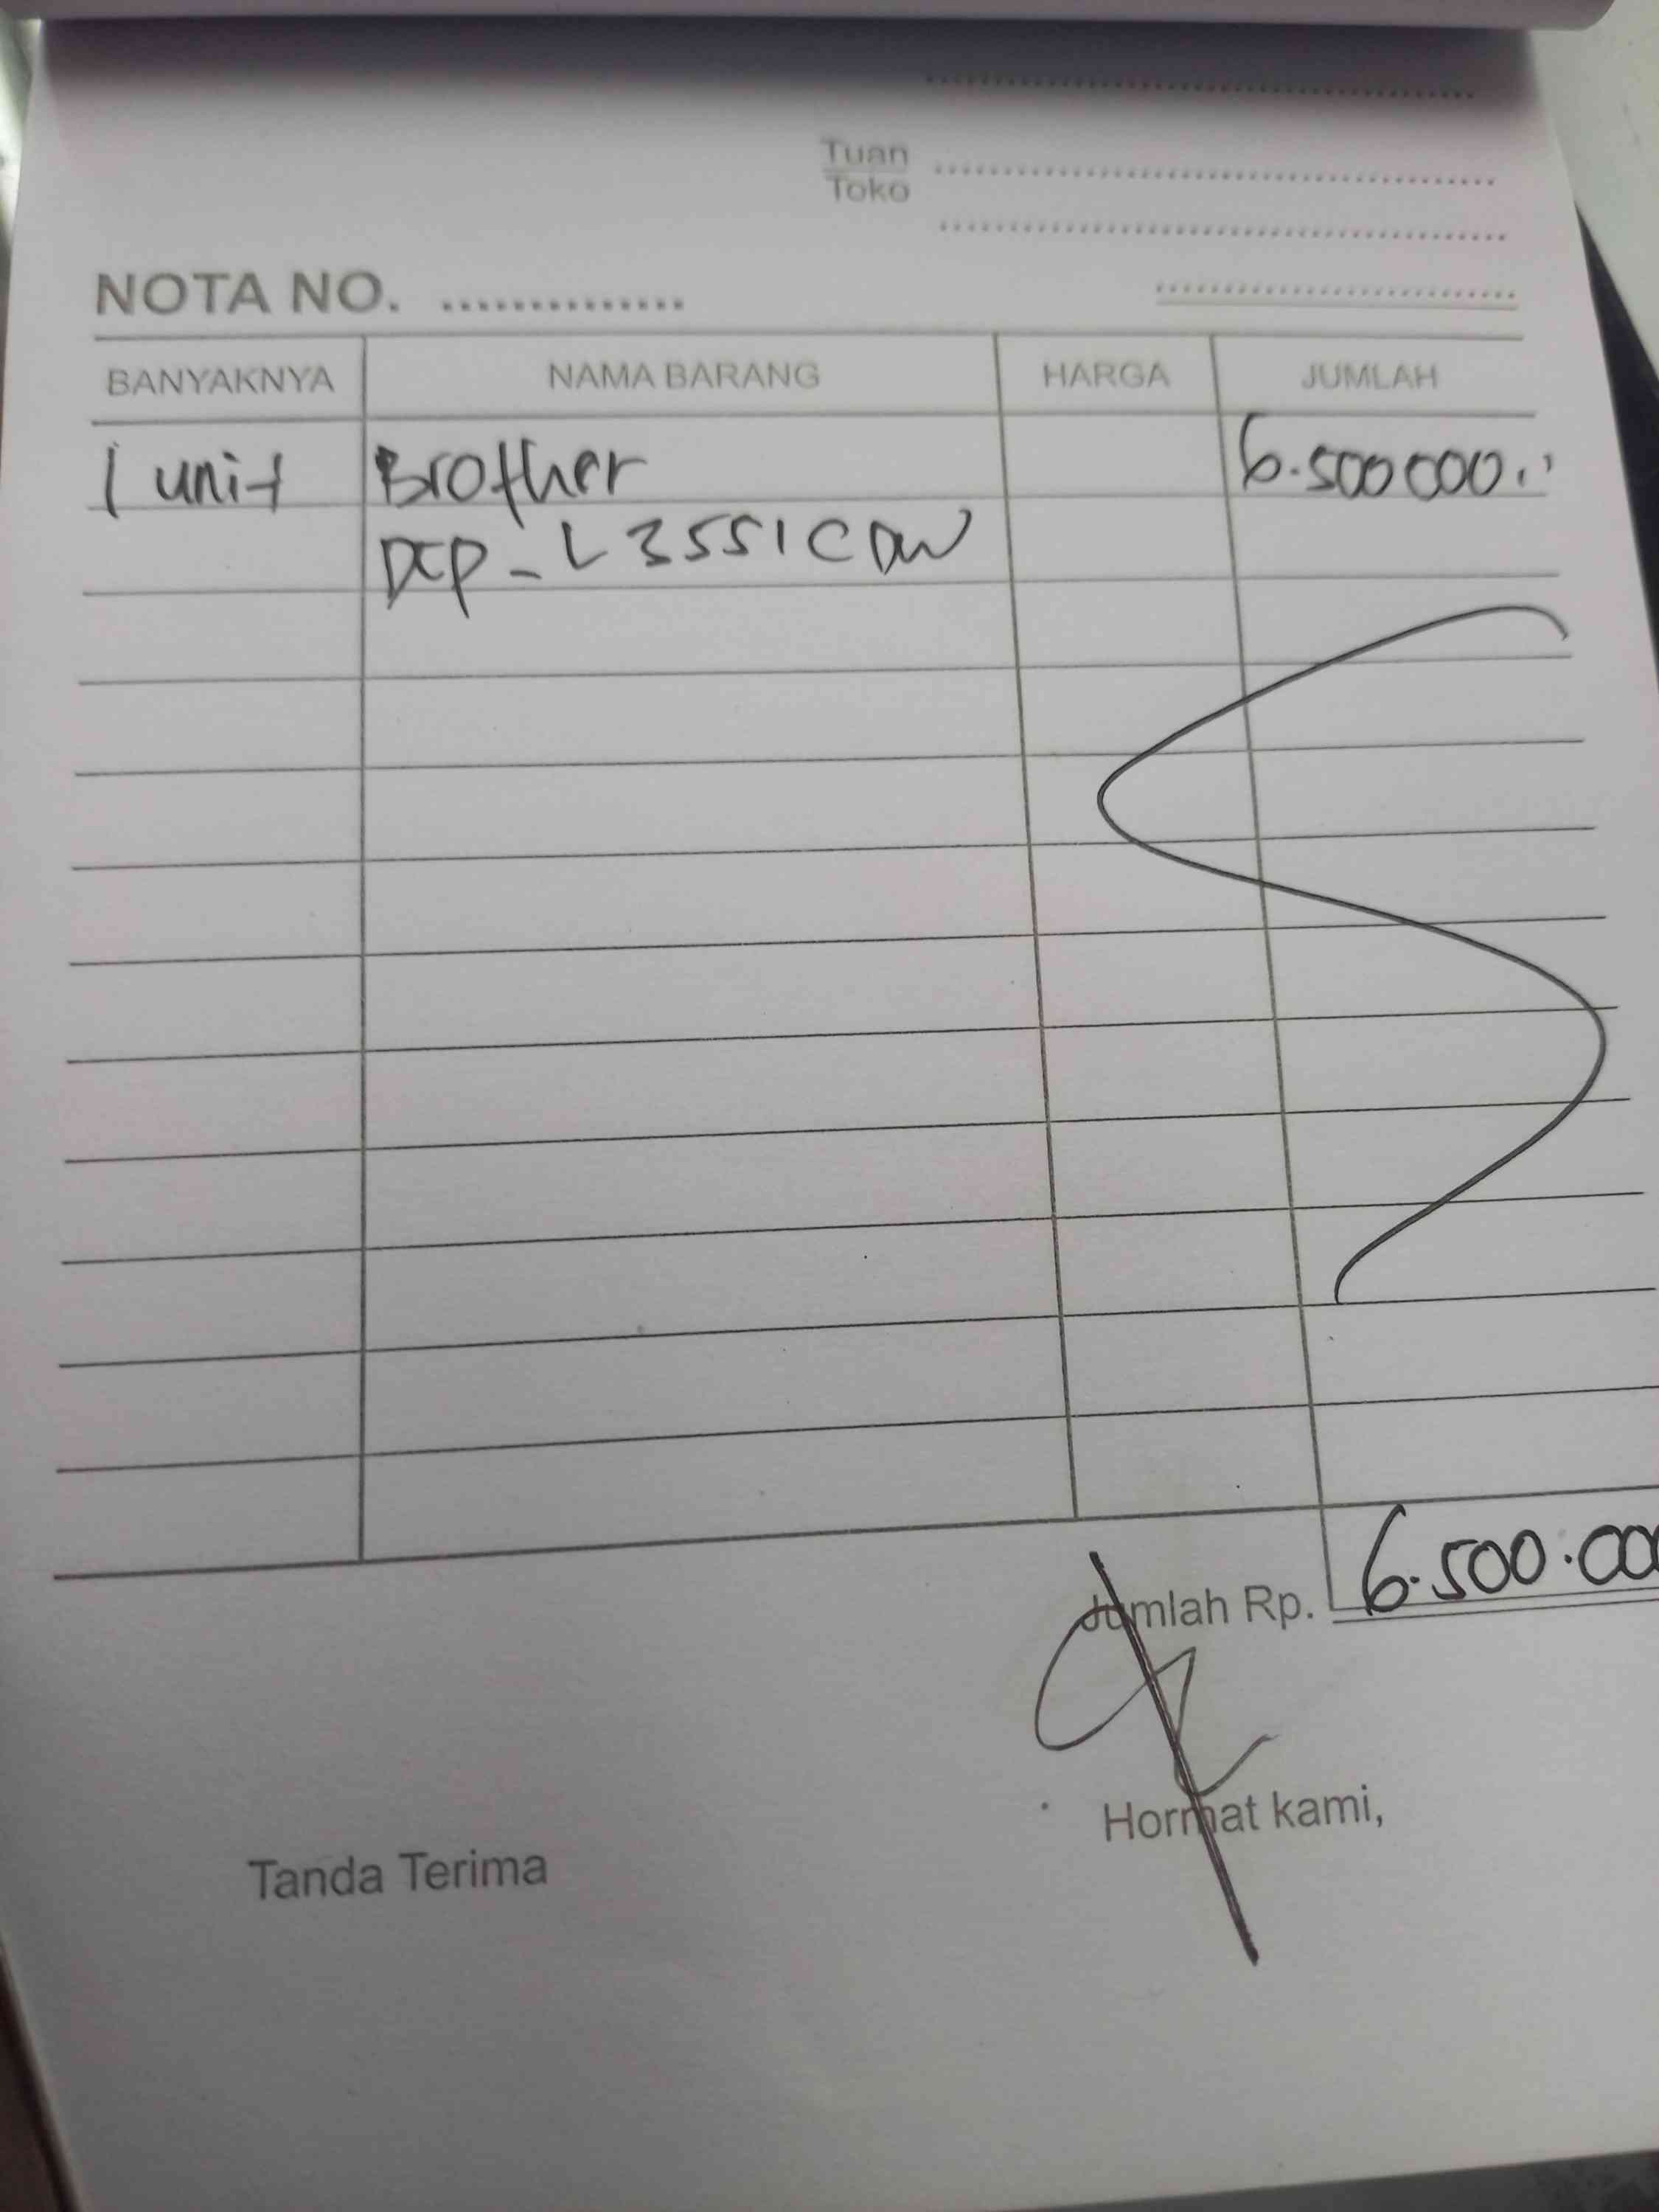 Tuan
Toko
NOTA NO. ..............
BANYAKNYA NAMA BARANG HARGA JUMLAH
1 unit Brother 6.500000.,
DCP - L3551CDW
Jumlah Rp. 6.500.00
Hormat kami,
Tanda Terima